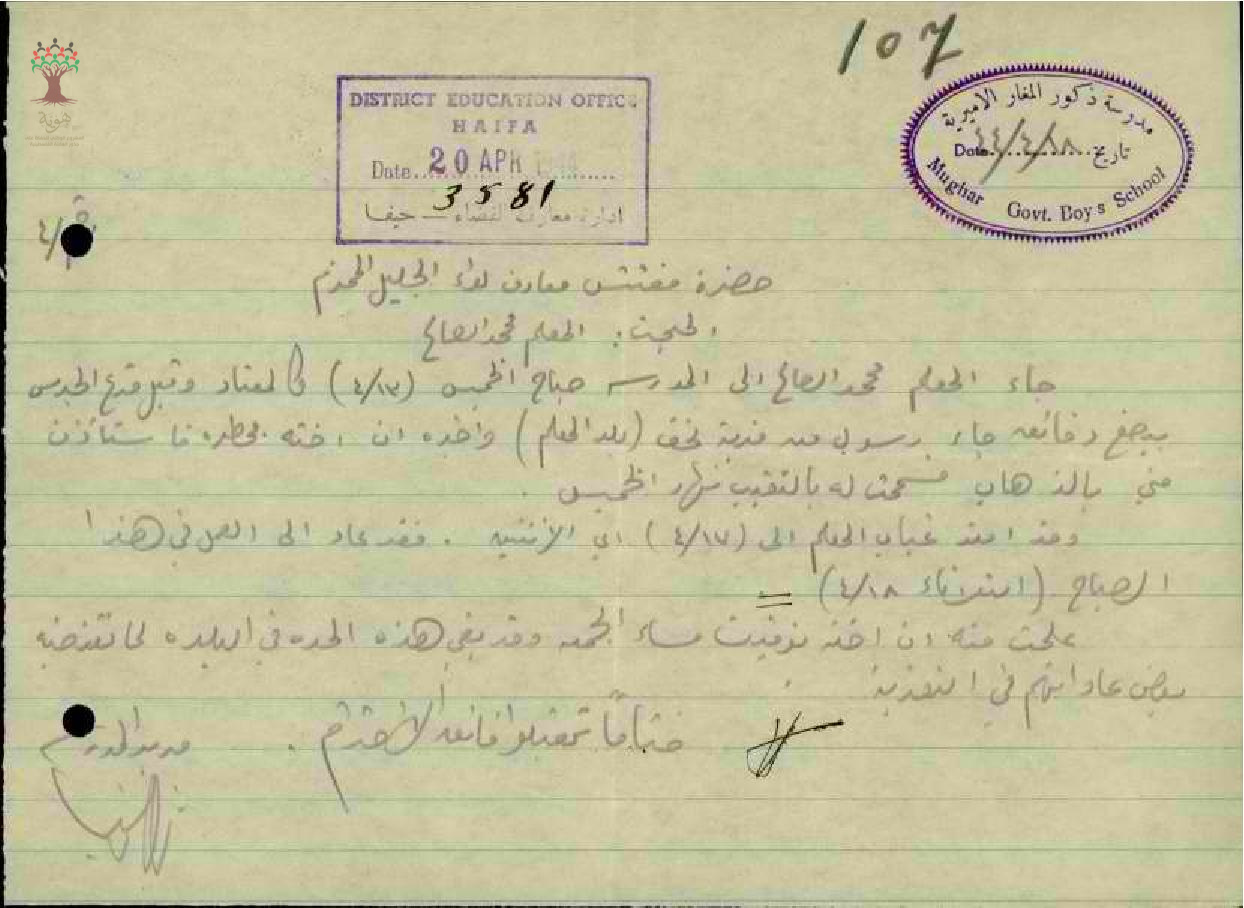 107
هوية
DISTRICT EDUCATION OFFICE
HAIFA
Date 20 APR 1944
3581
ادارة معارف لقضاء — حيفا
مدرسة ذكور المغار الاميرية
Date ٤٤/٤/١٨ تاريخ
Mughar Govt. Boys School
حضرة مفتش معارف لواء الجليل المحترم
المعلم محمد الصالح
جاء المعلم محمد الصالح الى المدرسه صباح الخميس (٤/١٣) كالمعتاد وقبل قرع الجرس
ببضع دقائق جاء رسول من قرية نحف (بلد المعلم) واخبره ان اخته بخطر فاستأذن
مني بالذهاب فسمحت له بالتغيب نهار الخميس .
وقد امتد غياب المعلم الى (٤/١٧) اي الأثنين . فقد عاد الى العمل في هذا
الصباح (الثلاثاء ٤/١٨)
علمت منه ان اخته توفيت مساء الجمعه وقد بقي هذه المده في البلده لما تقتضيه
بعض عاداتهم في التعزية .
ختاماً تفضلوا فائق الاحترام .
مدير المدرسة